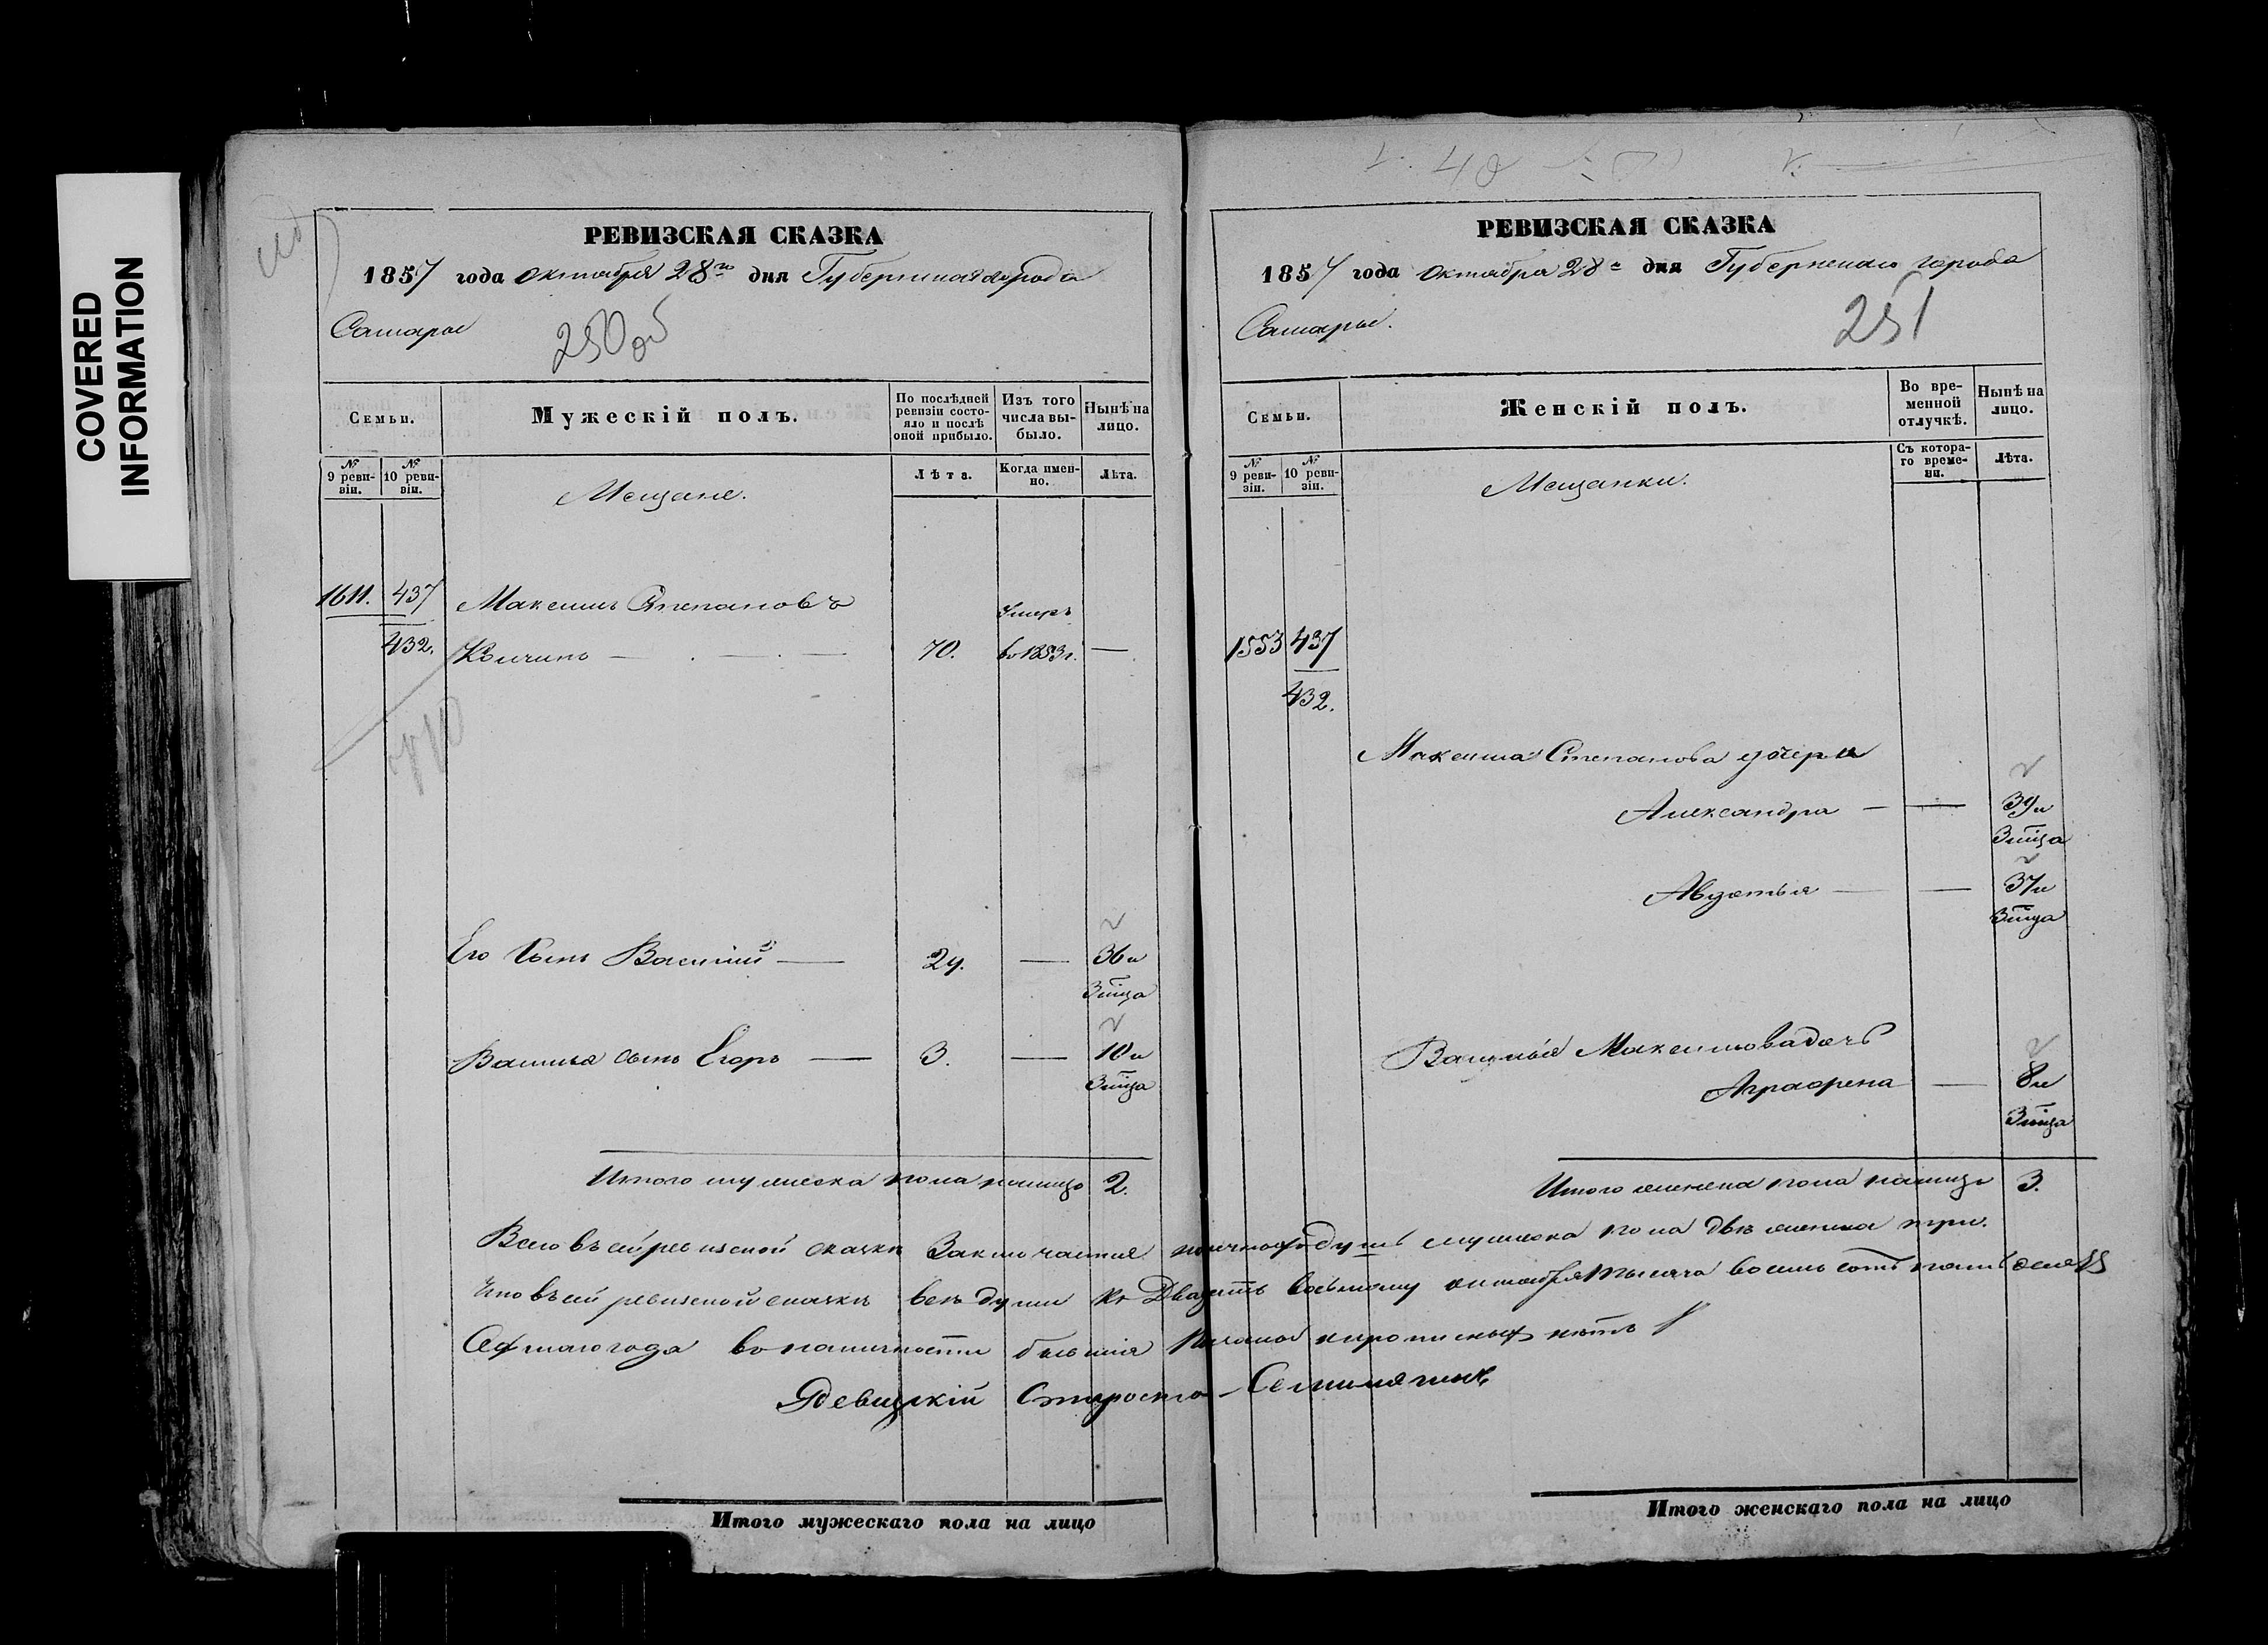 COVERED
INFORMATION
РЕВИЗСКАЯ СКАЗКА
1857 года октября 28го дня Губернскаго города
Самары
250 об
Семьи.
Мужескій полъ.
По послѣдней ревизіи состояло и послѣ оной прибыло.
Изъ того числа выбыло.
Нынѣ на лицо.
№ 9 ревизіи.
№ 10 ревизіи.
Лѣта.
Когда именно.
Лѣта.
Мещане.
1611. 437 Максимъ Степановъ Умеръ
432. 70. въ 1853 г. —
Его сынъ Василій — 24. — 36 и
3 мца
Василья сынъ Егоръ — 3. — 10 и
3 мца
Итого мужеска пола налицо 2.
РЕВИЗСКАЯ СКАЗКА
1857 года октября 28го дня Губернскаго города
Самары.
251
Семьи.
Женскій полъ.
Во временной отлучкѣ.
Нынѣ на лицо.
№ 9 ревизіи.
№ 10 ревизіи.
Съ котораго времени.
Лѣта.
Мещанки.
1553 437
432.
Максима Степанова дочери
Александра — — 39 и
3 мца
Авдотья — — 37 и
3 мца
Василья Максимова дочь
Аграфена — 8 и
3 мца
Итого женска пола налицо 3.
Всего въ сей ревизской сказкѣ заключается душъ мужеска пола двѣ женска три.
Что въ сей ревизской сказкѣ всѣ души къ двадцать восьмому октября тысяча восемь сотъ пять десятъ
седьмаго года въ наличности бывшія и прописныхъ нѣтъ
Староста
Итого мужескаго пола на лицо
Итого женскаго пола на лицо